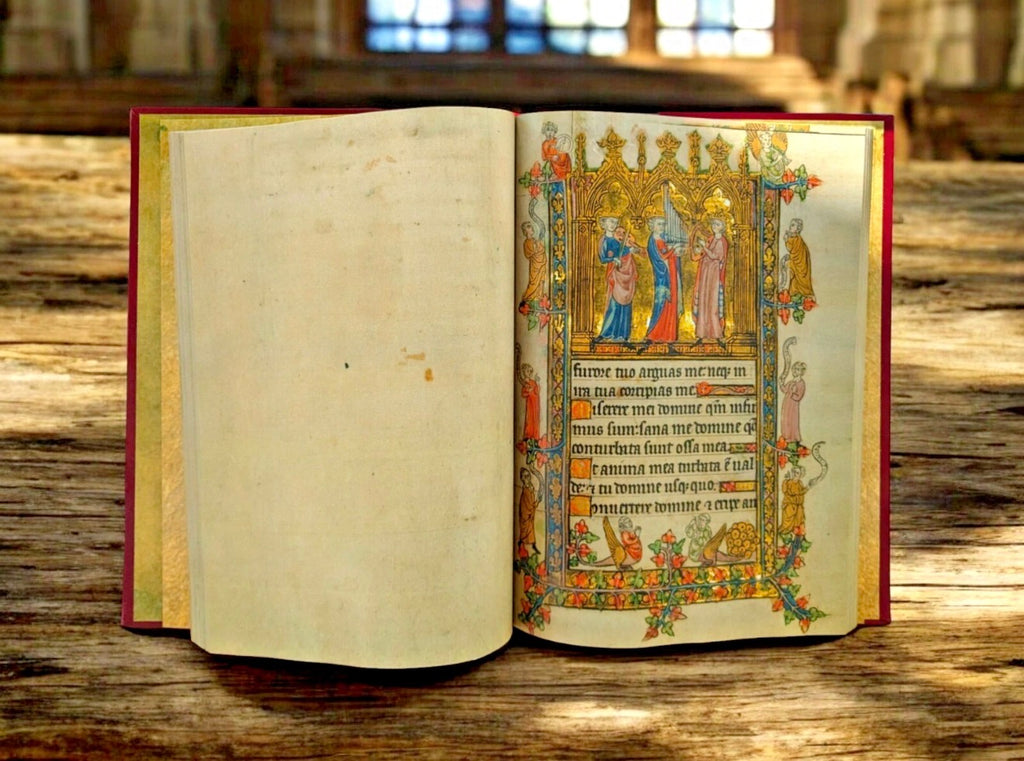 furore tuo arguas me: neqꝫ in
ira tua corripias me.
Miserere mei domine qm̄ infir
mus sum: sana me domine qm̄
conturbata sunt ossa mea.
Et anima mea turbata ē ual
de: ⁊ tu domine usqꝫ quo.
Conuertere domine ⁊ eripe an